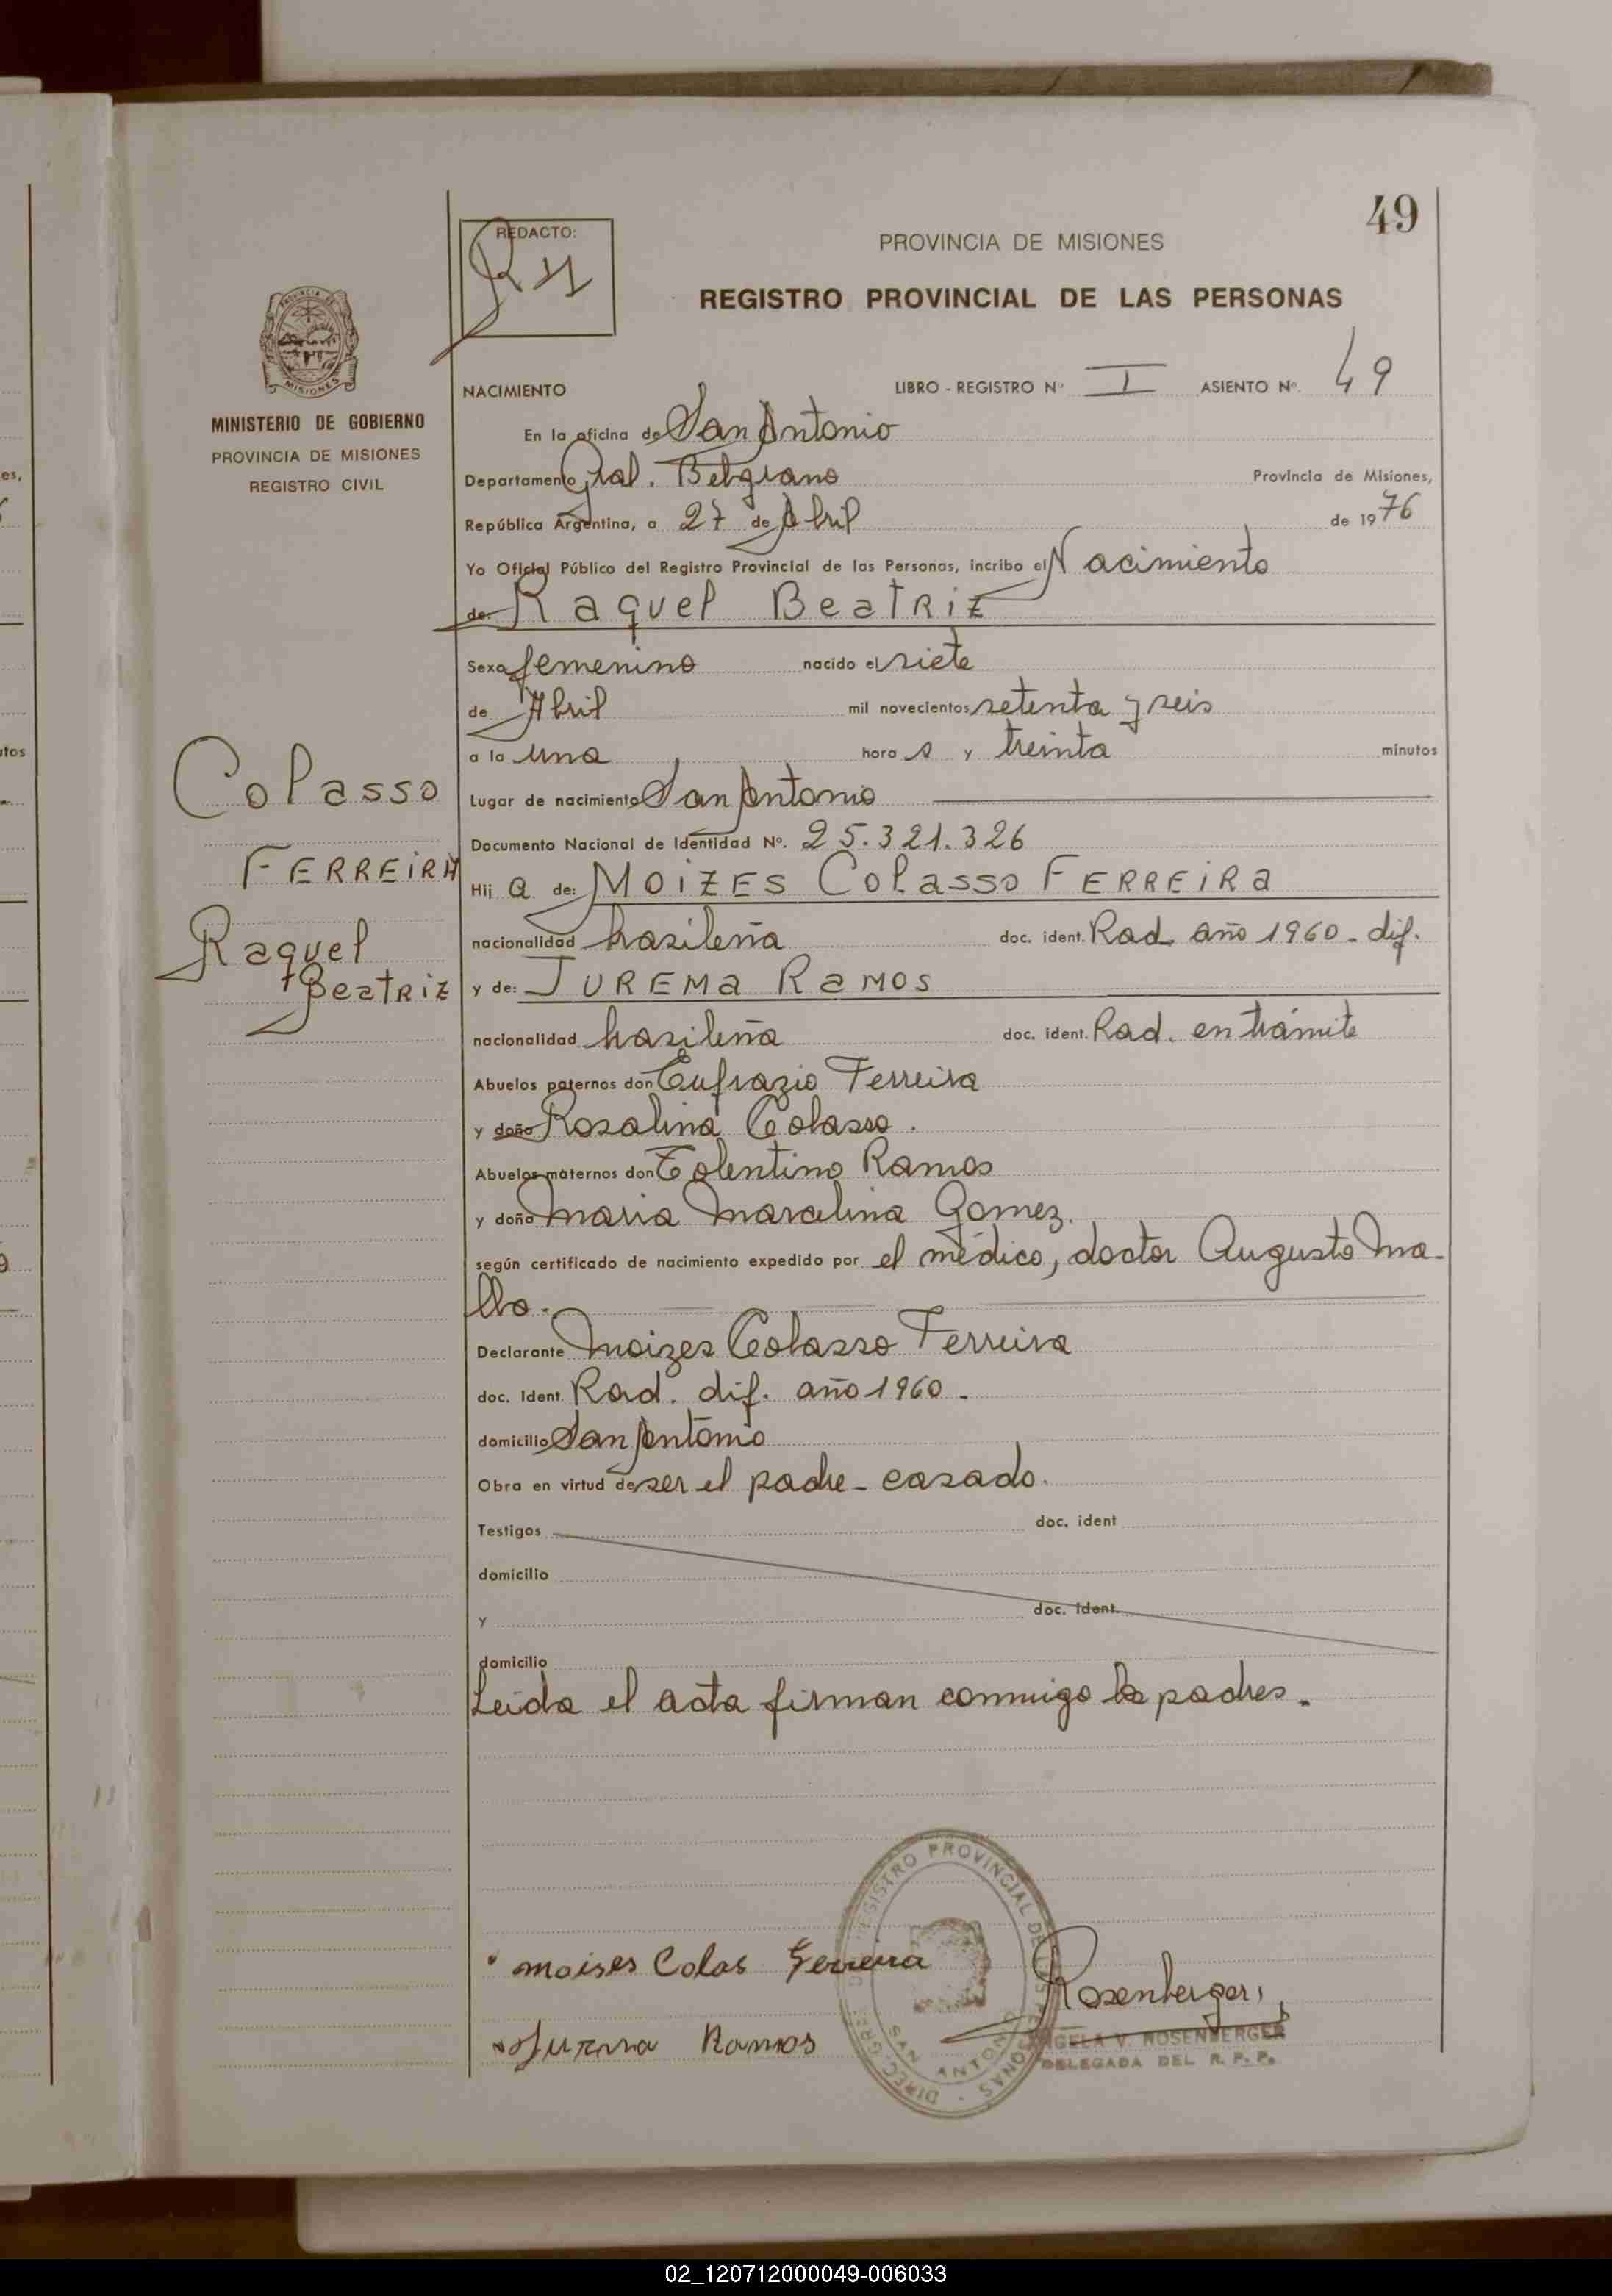 49
REDACTO:
PROVINCIA DE MISIONES
REGISTRO PROVINCIAL DE LAS PERSONAS
PROVINCIA DE
MISIONES
MINISTERIO DE GOBIERNO
PROVINCIA DE MISIONES
REGISTRO CIVIL
NACIMIENTO LIBRO - REGISTRO Nº I ASIENTO Nº. 49
En la oficina de San Antonio
Departamento Gral. Belgrano Provincia de Misiones,
República Argentina, a 27 de Abril de 1976
Yo Oficial Público del Registro Provincial de las Personas, incribo el Nacimiento
de: Raquel Beatriz
Sexo femenino nacido el siete
de Abril mil novecientos setenta y seis
a la una hora s y treinta minutos
Lugar de nacimiento San Antonio
Documento Nacional de Identidad Nº. 25.321.326
Colasso
FERREIRA
Raquel
Beatriz
Hij a de: MOIZES Colasso FERREIRa
nacionalidad brasileña doc. ident. Rad. año 1960 - dif.
y de: JUREMa RaMOS
nacionalidad brasileña doc. ident. Rad. en trámite
Abuelos paternos don Eufrazio Ferreira
y doña Rosalina Colasso.
Abuelos maternos don Tolentino Ramos
y doña Maria Marcelina Gomez.
según certificado de nacimiento expedido por el médico, doctor Augusto Ma-
llo.
Declarante Moizes Colasso Ferreira
doc. Ident. Rad. dif. año 1960.
domicilio San Antonio
Obra en virtud de ser el padre - casado.
Testigos doc. ident
domicilio
y doc. Ident.
domicilio
Leida el acta firman conmigo los padres.
moises Colas Ferreira
Rosenberger
Jurema Ramos
ANGELA V. ROSENBERGER
DELEGADA DEL R. P. P.
REGISTRO PROVINCIAL DE LAS PERSONAS
SAN ANTONIO
es,
utos
02_120712000049-006033